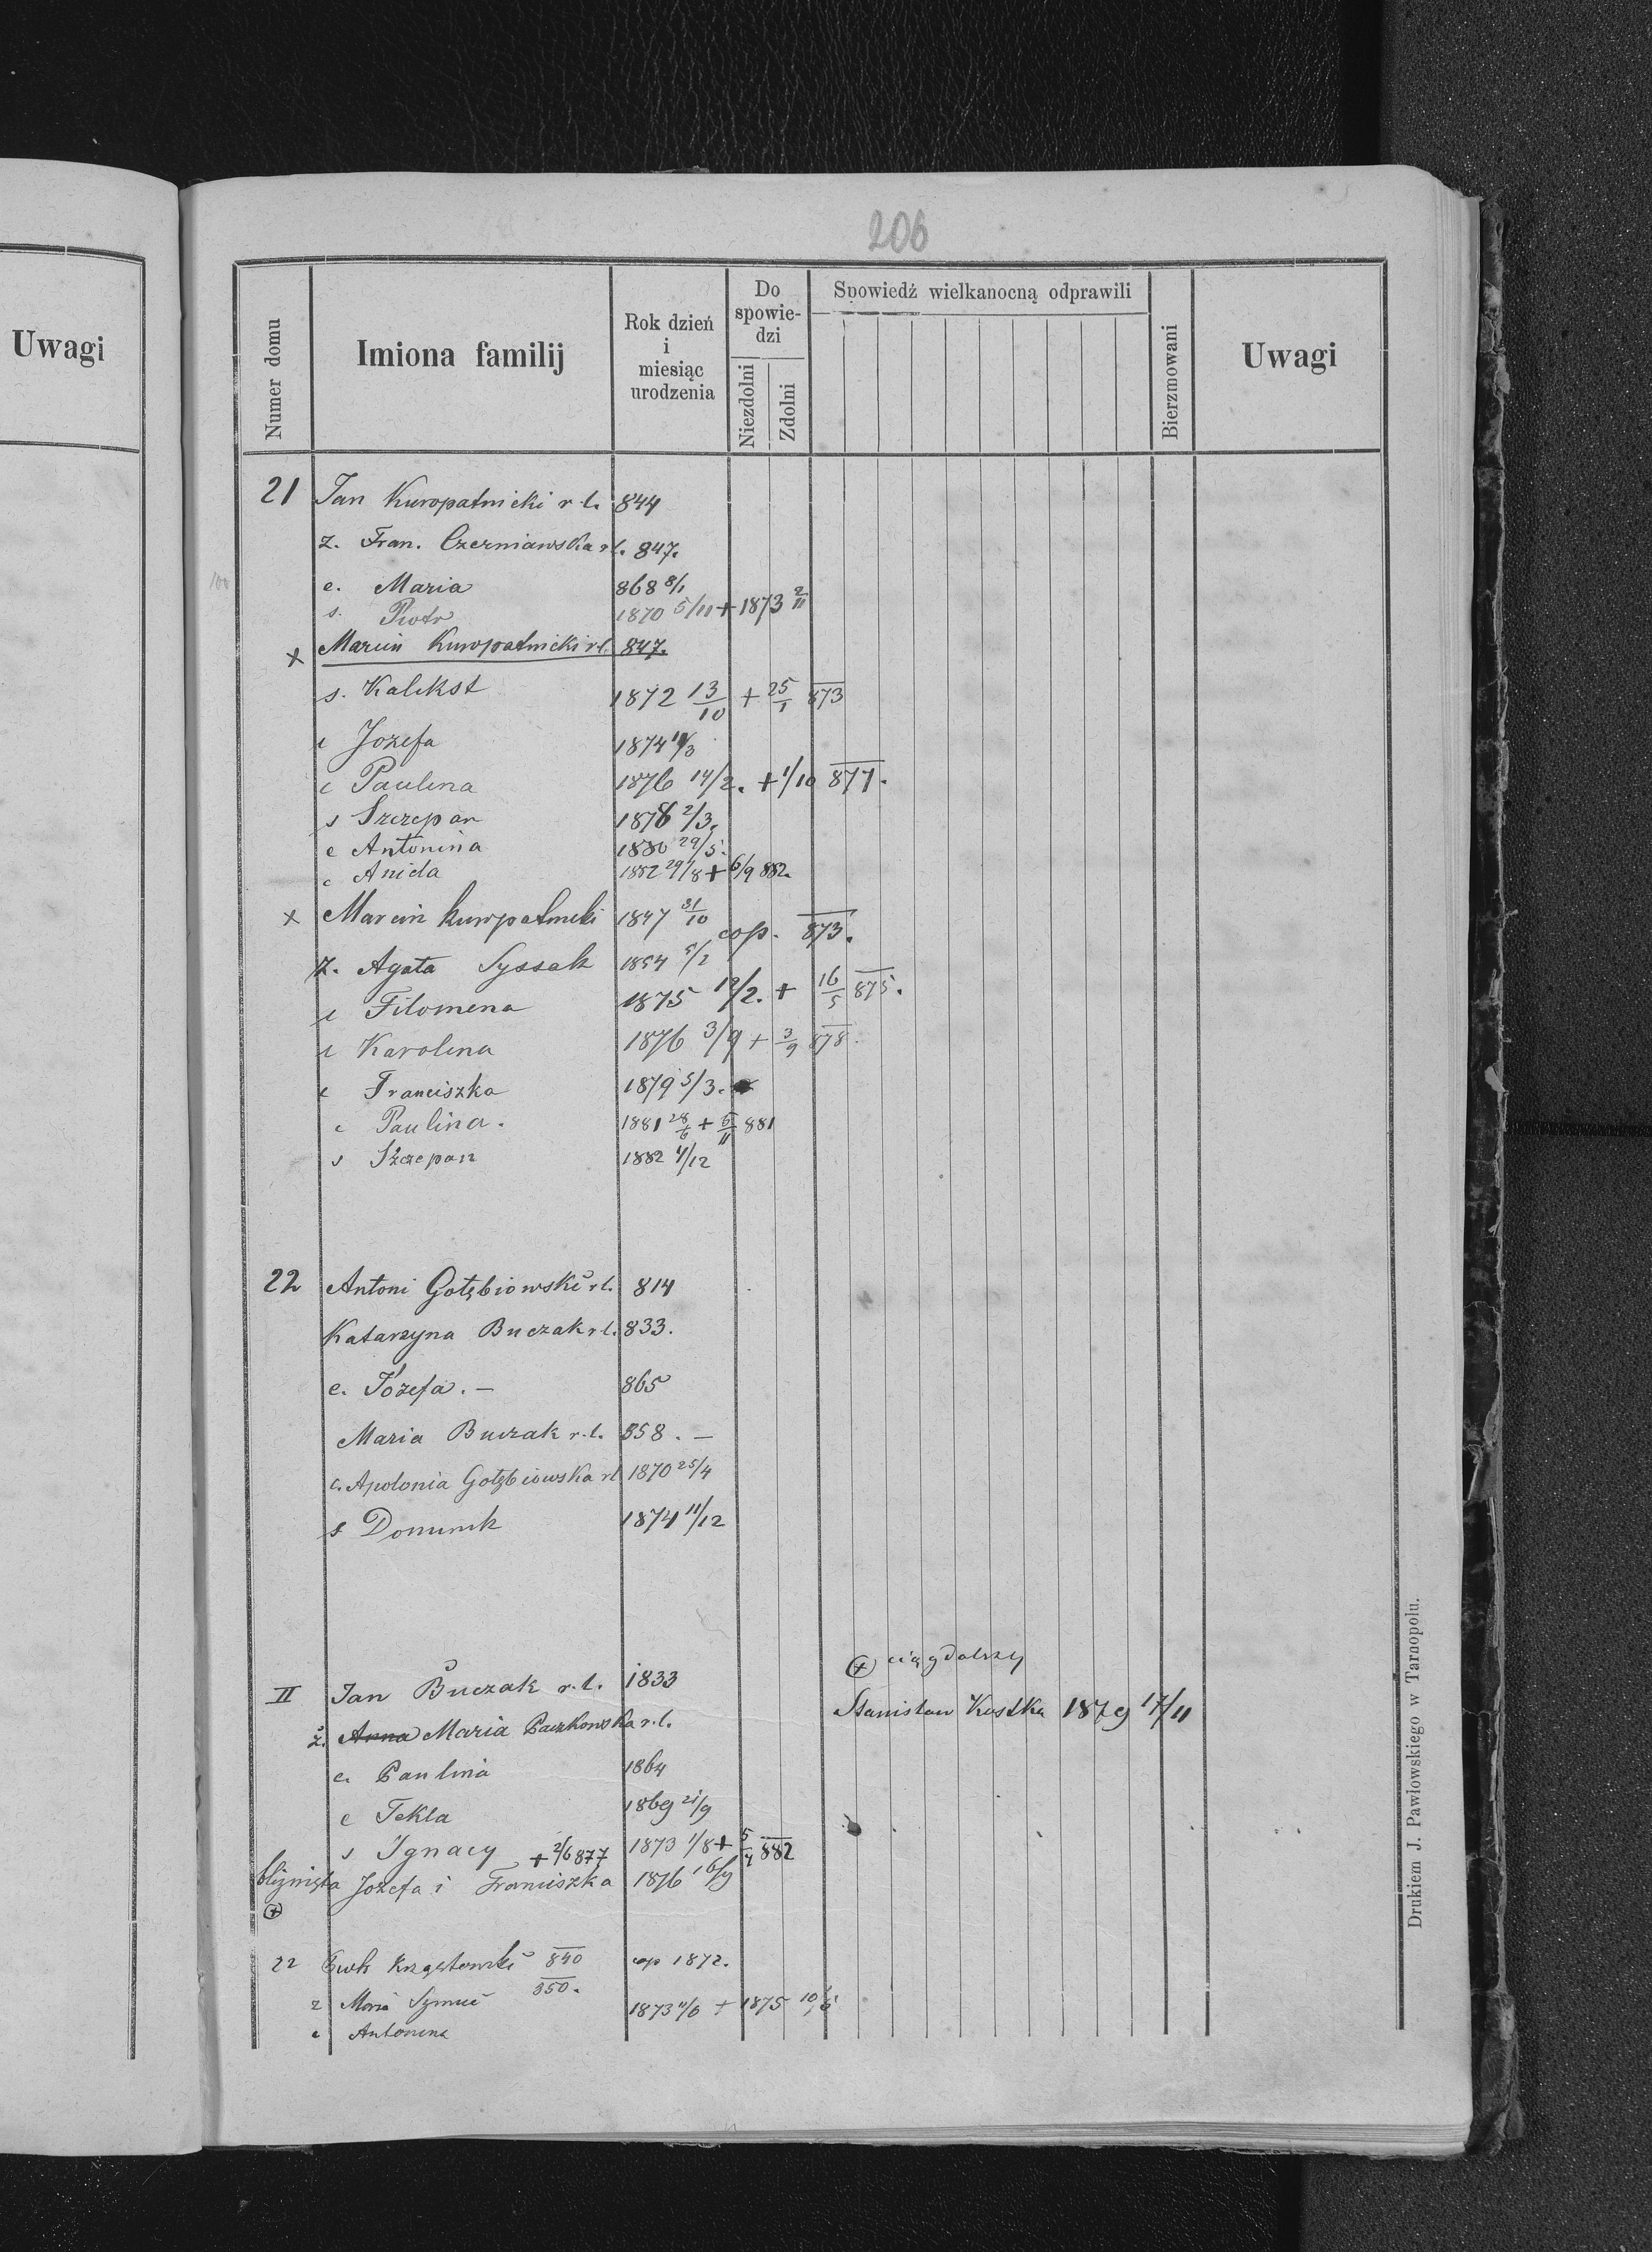 206
Uwagi
Numer domu
Imiona familij
Rok dzień i miesiąc urodzenia
Do spowie-dzi
Niezdolni
Zdolni
Spowiedź wielkanocną odprawili
Bierzmowani
Uwagi
21 Jan Kuropatnicki r. l. 844
z. Fran. Czerniawska r l. 847.
c. Maria 868 8/1
s. Piotr 1870 5/11 + 1873 2/11
x Marcin Kuropatnicki r l. 847.
s. Kalikst 1872 13/10 + 25/1 873
c Jozefa 1874 /3
c Paulina 1876 14/2. + 1/10 877.
s Szczepan 1878 2/3.
c Antonina 1880 29/5.
c Anida 1882 29/8 + 6/9 882.
x Marcin Kuropatnicki 1847 31/10 cop. 873.
z. Agata Syssak 1854 5/2
c Filomena 1875 12/2. + 16/5 875.
c Karolina 1876 3/9 + 3/9 878.
c Franciszka 1879 5/3.
c Paulina. 1881 28/6 + 5/11 881
s Szczepan 1882 4/12
22 Antoni Gołębiowski r l. 814
Katarzyna Buczak r l. 833.
c. Józefa. — 865
Maria Buczak r. l. 858. —
c. Apolonia Gołębiowska rl 1870 25/4
s Dominik 1874 11/12
+ ciąg dalszy
II Jan Buczak r. l. 1833
Stanisław Kostka 1879 17/11
ż. Anna Maria Paczkowska r. l.
c. Paulina 1864
c Tekla 1869 21/9
s Ignacy 1873 1/8 + 5/4 882
+ 2/6 877
bliźnięta Jozefa i Franciszka 1876 16/9
+
22 840 cop 1872.
z Maria 850.
c Antonina 1873 11/6 + 1875 10/6
Drukiem J. Pawłowskiego w Tarnopolu.